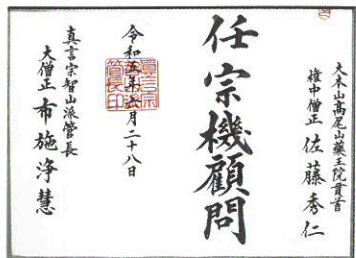 大本山高尾山藥王院貫首
権中僧正 佐藤秀仁
任宗機顧問
令和五年六月二十八日
真言宗智山派管長
大僧正 布施浄慧